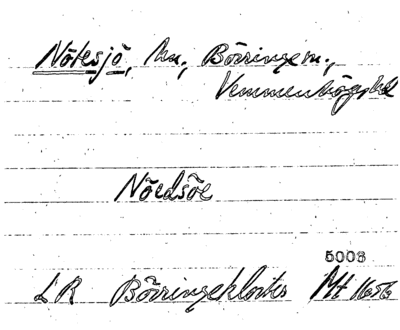 Nötesjö, hn, Börringe sn.,
Vemmenhögs hd
Nöedsöe
5003
LR Börringekloster Mt 1656